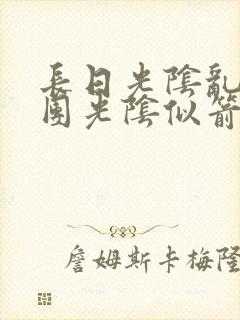 長日光陰亂
團光陰似箭
詹姆斯卡梅隆